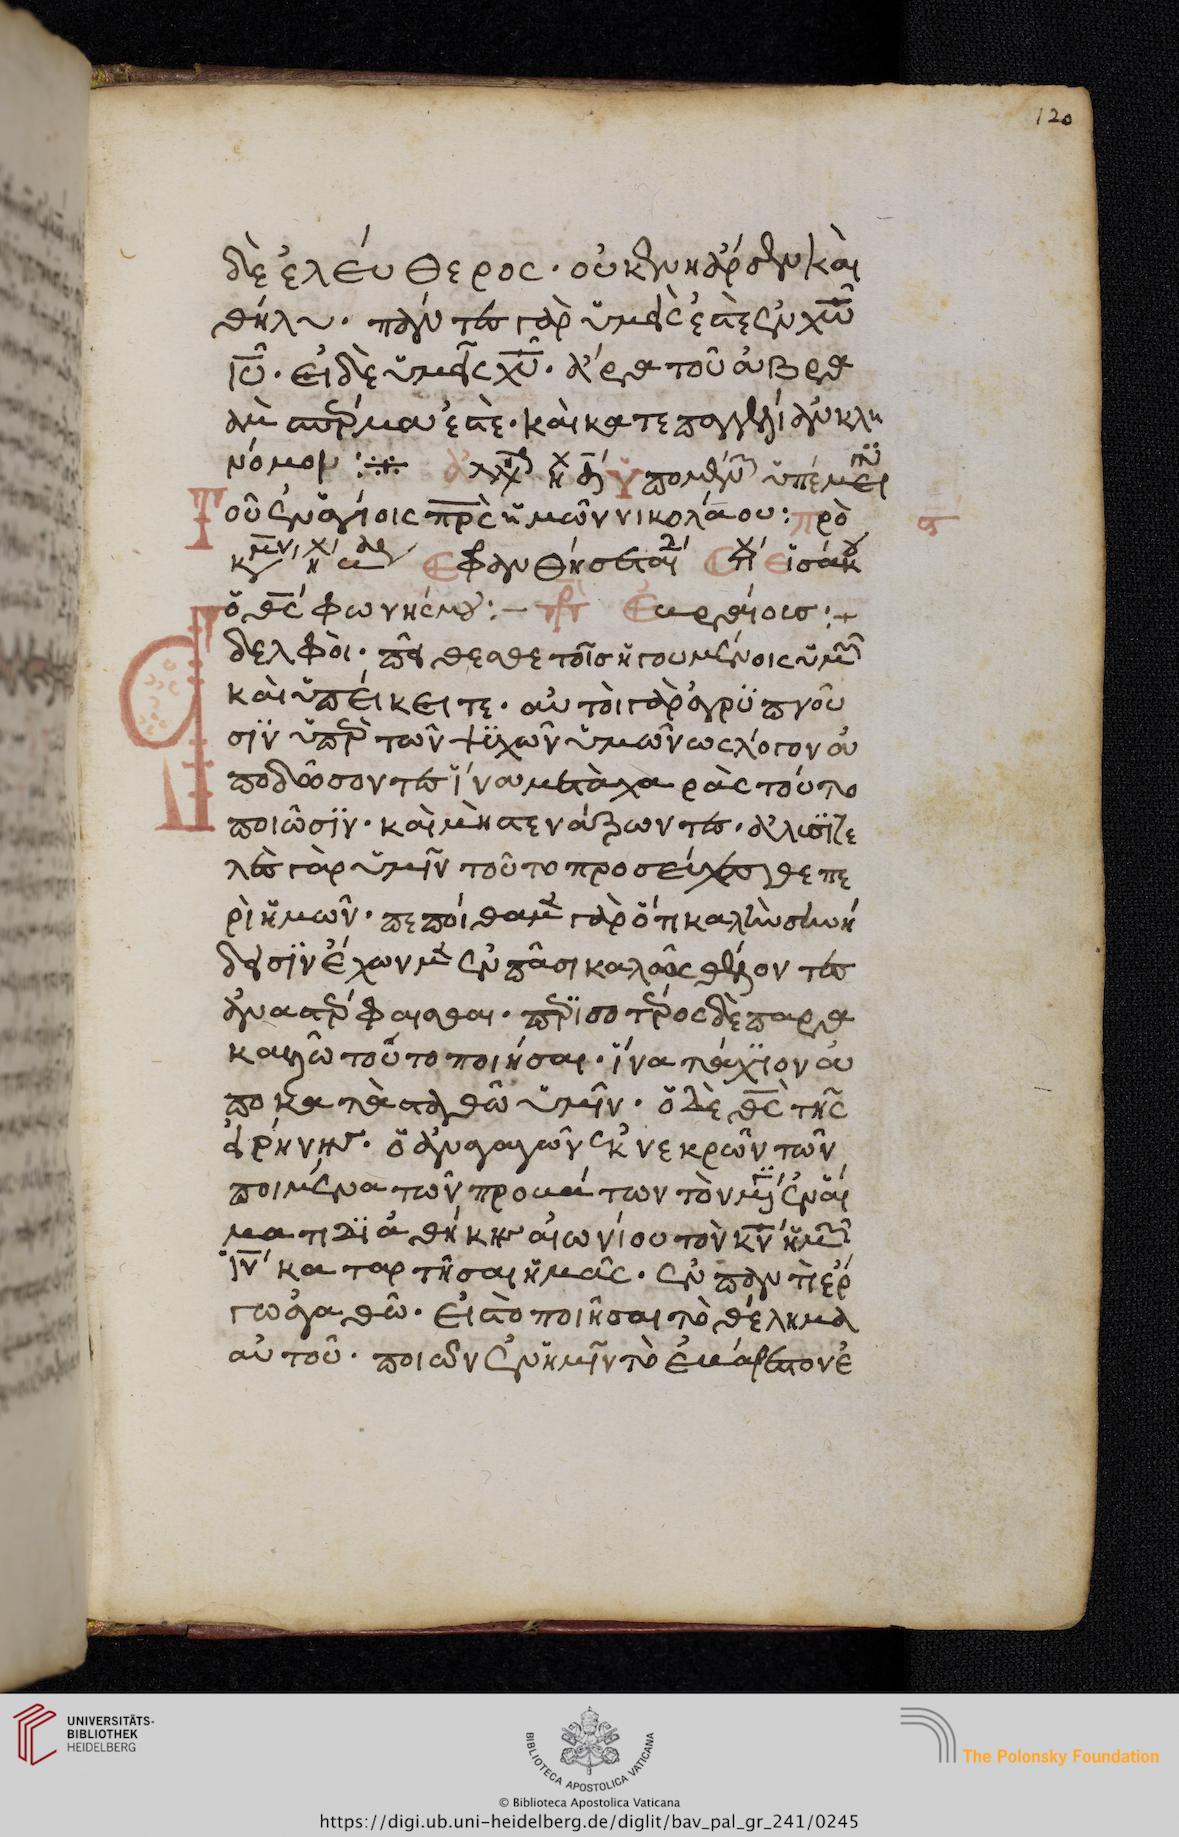 120
δὲ ἐλεύθερος· οὐκ ἔνι ἄρσεν καὶ
θήλυ· πάντες γὰρ ὑμεῖς ἐστὲ ἐν χω
ιυ· εἰ δὲ ὑμεῖς χυ· ἄρα τοῦ ἀβρα
ὰμ σπέρμα ἐστὲ· καὶ κατ ἐπαγγελίαν κλη
νόμοι
Τοῦ ἐν ἁγίοις πρς ἡμῶν νικολάου: πρὸ
Εφάνθησαν
ὁ θς φωνῆς μου:
δελφοὶ· πείθεσθε τοῖς ἡγουμένοις ὑμῶν
καὶ ὑπείκειτε· αὐτοὶ γὰρ ἀγρϋπνοῦ
σϊν ὑπὲρ τῶν ψϋχῶν ὑμῶν ως λόγον ἀ
ποδώσοντες ἵνα μετὰ χαρὰς τούτο
ποιῶσϊν· καὶ μὴ στενάζωντες· ἀλυσϊτε
λὲς γὰρ ὑμῖν τοῦτο προσεύχεσθε πε
ρὶ ἡμῶν· πεποίθαμεν γὰρ ὅτι καλὴν συνεί
δησϊν ἔχωμεν ἐν πᾶσι καλῶς θέλοντες
ἀναστρέφαισθαι· περϊσοτέρος δὲ παρα
καλῶ τοῦτο ποιήσαι· ἵνα τάχϊον ἀ
ποκατασταθῶ ὑμῖν· ὁ δὲ θς τῆς
εἰρήνης· ὁ ἀναγαγῶν ἐκ νεκρῶν τῶν
ποιμένα τῶν προβάτων τὸν μέγαν ἐν αἵ
ματι δϊαθήκης αἰωνίου τὸν κν ἡμῶν
ιν καταρτῆσαι ἡμᾶς· ἐν παντὶ ἔρ
γω ἀγαθῶ· εἰς τὸ ποιῆσαι τὸ θέλημα
αὐτοῦ· ποιῶν ἐν ἡμῖν τὸ εὐάρεστον ἐ
UNIVERSITÄTS-
BIBLIOTHEK
HEIDELBERG
BIBLIOTECA APOSTOLICA VATICANA
The Polonsky Foundation
© Biblioteca Apostolica Vaticana
https://digi.ub.uni-heidelberg.de/diglit/bav_pal_gr_241/0245